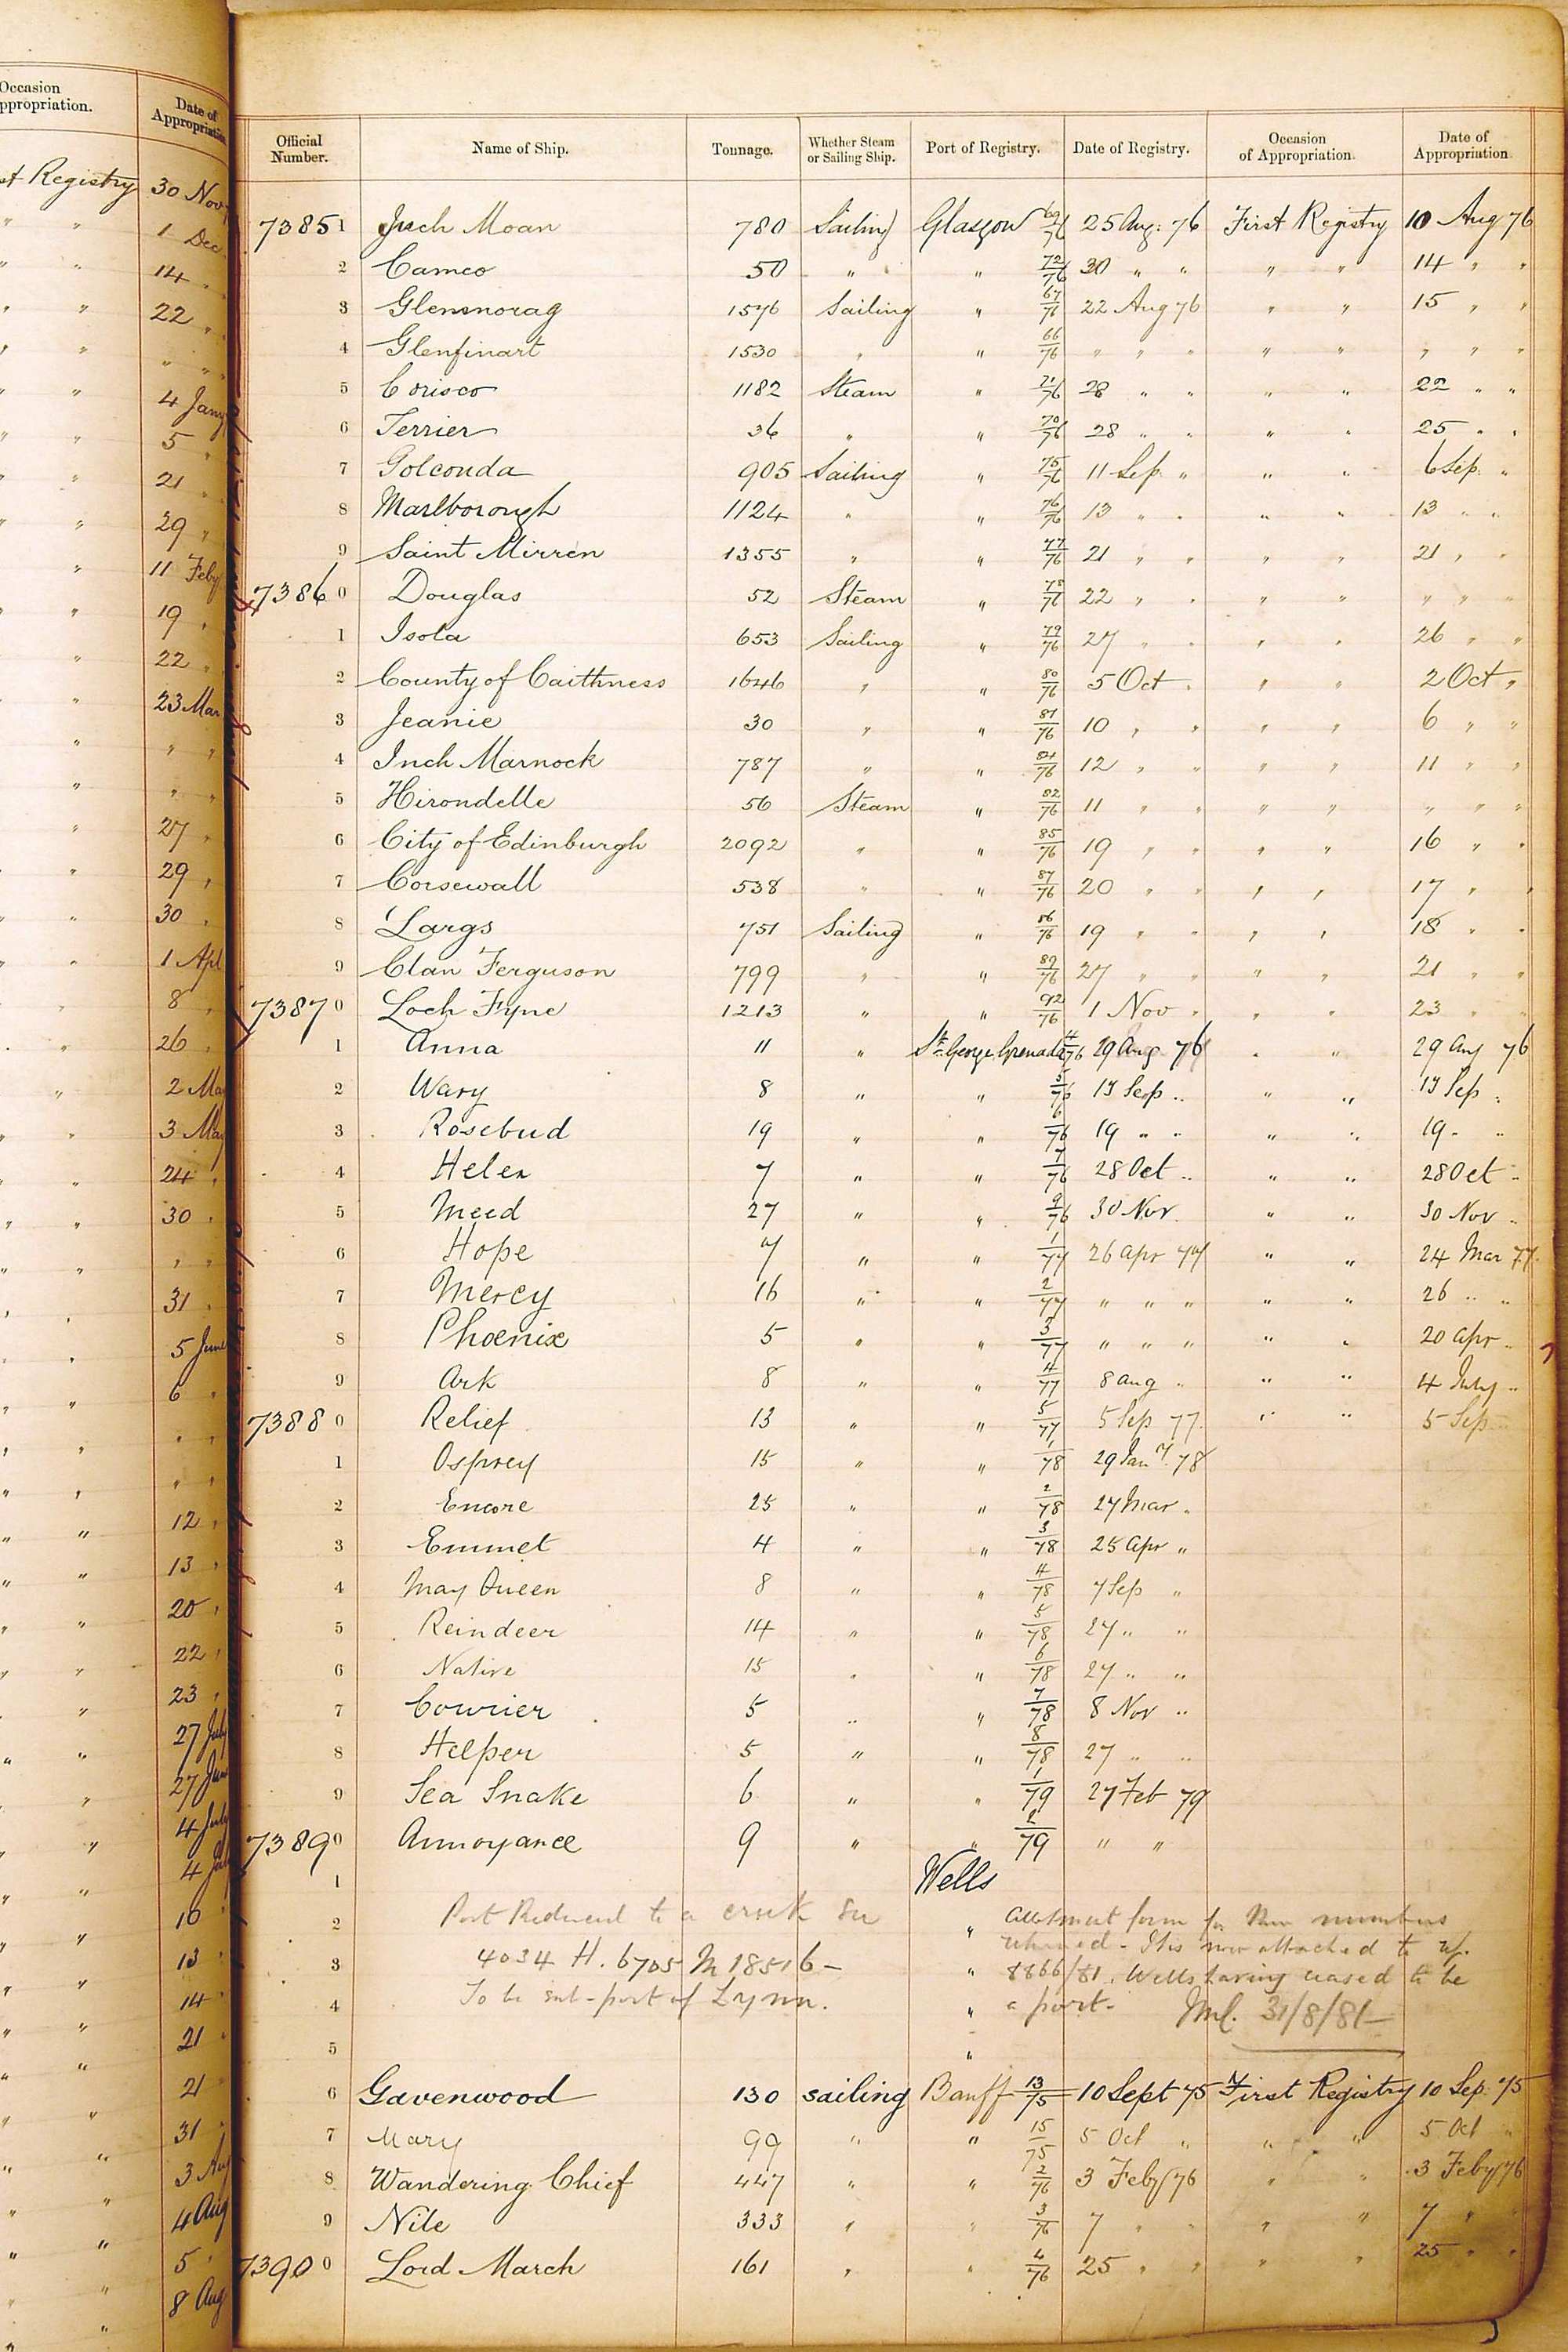 Occasion
Appropriation.
Date of
Appropriation
st Registry 30 Nov
" " 1 Dec
" " 14 "
" " 22 "
" " " "
" " 4 Jany
" " 5 "
" " 21 "
" " 29 "
" 11 Feby
" " 19 "
" 22 "
" 23 Mar
" " "
" " "
" 27 "
" " 29 "
" " 30 "
" " 1 Apl
" 8 "
" " 26 "
" 2 May
" " 3 May
" " 24 "
" " 30 "
" " " "
" " 31 "
" " 5 June
" " 6 "
" " " "
" " " "
" " 12 "
" " 13 "
" " 20 "
" " 22 "
" 23 "
" " 27 July
" 27 Jun
" " 4 July
" " 4 Jul
" " 10 "
" " 13 "
" " 14 "
" " 21 "
" " 21 "
" " 31 "
" " 3 Aug
" " 4 Aug
" " 5 "
" " 8 Aug
Official Number. Name of Ship. Tonnage. Whether Steam or Sailing Ship. Port of Registry. Date of Registry. Occasion of Appropriation. Date of Appropriation
73851 Inch Moan 780 Sailing Glasgow 69/76 25 Aug: 76 First Registry 10 Aug 76
2 Cameo 50 " " " 72/76 30 " " " " 14 " "
3 Glenmorag 1576 Sailing " 67/76 22 Aug 76 " " 15 " "
4 Glenfinart 1530 " " 66/76 " " " " " " " "
5 Corisco 1182 Steam " 71/76 28 " " " " 22 " "
6 Terrier 36 " " 70/76 28 " " " " 25 " "
7 Golconda 905 Sailing " 75/76 11 Sep. " " " 6 Sep. "
8 Marlborough 1124 " " 76/76 13 " " " " 13 " "
9 Saint Mirren 1355 " " 77/76 21 " " " " 21 " "
73860 Douglas 52 Steam " 78/76 22 " " " " " " "
1 Isola 653 Sailing " 79/76 27 " " " " 26 " "
2 County of Caithness 1646 " " 80/76 5 Oct " " " 2 Oct "
3 Jeanie 30 " " 81/76 10 " " " " 6 " "
4 Inch Marnock 787 " " 84/76 12 " " " " 11 " "
5 Hirondelle 56 Steam " 82/76 11 " " " " " " "
6 City of Edinburgh 2092 " " 85/76 19 " " " " 16 " "
7 Corsewall 538 " " 87/76 20 " " " " 17 " "
8 Largs 751 Sailing " 86/76 19 " " " " 18 " "
9 Clan Ferguson 799 " " 89/76 27 " " " " 21 " "
73870 Loch Fyne 1213 " " 92/76 1 Nov " " " 23 " "
1 Anna 11 " St. George Grenada 4/76 29 Aug 76 " " 29 Aug 76
2 Wary 8 " " 5/76 13 Sep " " " 13 Sep "
3 Rosebud 19 " " 6/76 19 " " " " 19 " "
4 Helen 7 " " 7/76 28 Oct " " " 28 Oct "
5 Meed 27 " " 9/76 30 Nov. " " 30 Nov "
6 Hope 7 " " 1/77 26 Apr 77 " " 24 Mar 77
7 Mercy 16 " " 2/77 " " " " " 26 " "
8 Phœnix 5 " " 3/77 " " " " " 20 Apr "
9 Ark 8 " " 4/77 8 Aug " " " 4 July "
73880 Relief 13 " " 5/77 5 Sep 77 " " 5 Sep "
1 Osprey 15 " " 1/78 29 Jany. 78
2 Encore 25 " " 2/78 27 Mar "
3 Emmet 4 " " 3/78 25 Apr "
4 May Queen 8 " " 4/78 7 Sep "
5 Reindeer 14 " " 5/78 27 " "
6 Native 15 " " 6/78 27 " "
7 Courier 5 " " 7/78 8 Nov "
8 Helper 5 " " 8/78 27 " "
9 Sea Snake 6 " " 1/79 27 Feb 79
73890 Annoyance 9 " " 2/79 " "
1 Wells
2 Port Reduced to a creek See " Allotment form for New numbers
returned - It is now attached to
3 4034 H. 6705 M 18516 - " 8866/81. Wells having ceased to be
4 To be sub-port of Lynn. " a port - 31/8/81
5 "
6 Gavenwood 130 sailing Banff 13/75 10 Sept 75 First Registry 10 Sep. 75
7 Mary 99 " " 15/75 5 Oct " " " 5 Oct "
8 Wandering Chief 447 " " 2/76 3 Feby/76 " " 3 Feby/76
9 Nile 333 " " 3/76 7 " " " " 7 " "
73900 Lord March 161 " " 4/76 25 " " " " 25 " "